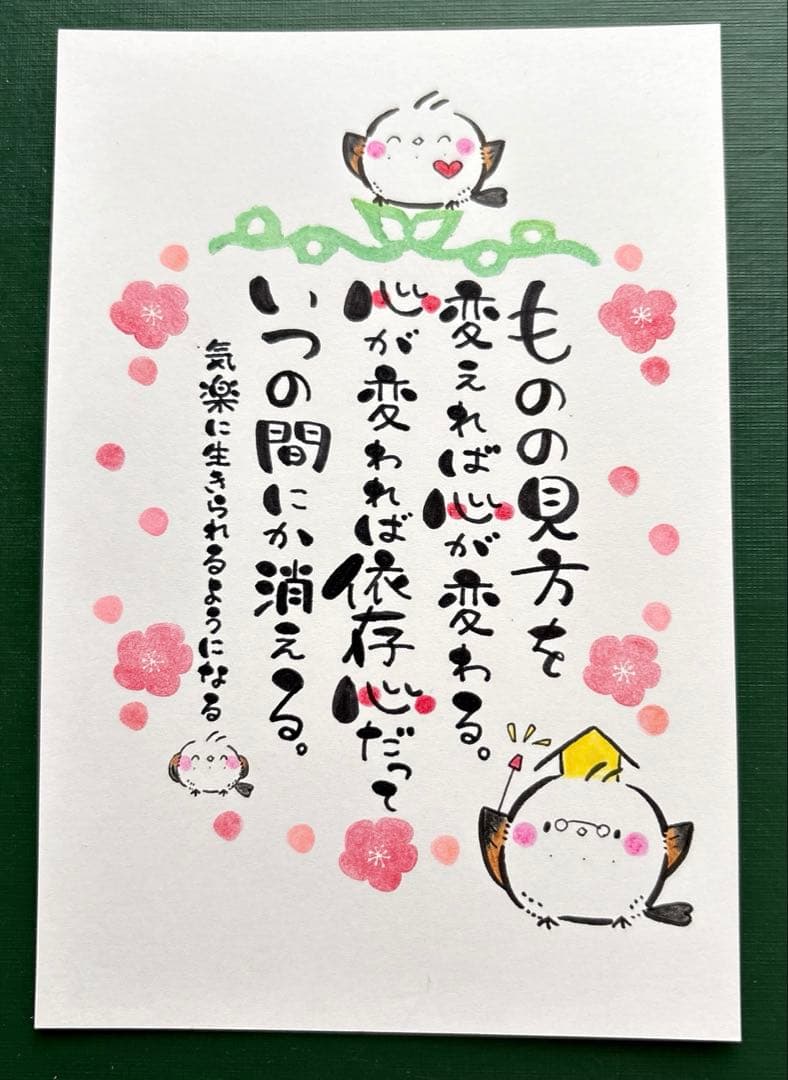 ものの見方を
変えれば心が変わる。
心が変われば依存心だって
いつの間にか消える。
気楽に生きられるようになる